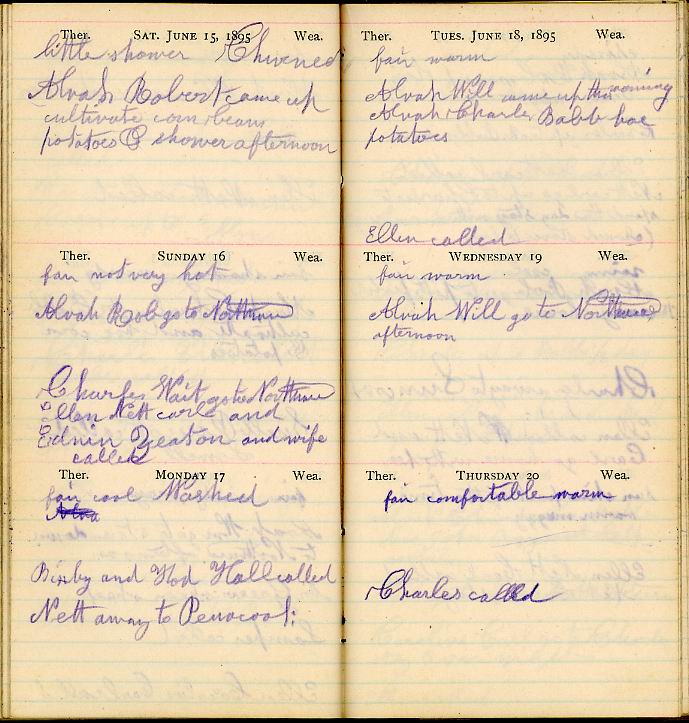 Ther. SAT. JUNE 15, 1895 Wea.
little shower Chirened
Alvah Robert came up
cultivate corn beans
potatoes shower afternoon
Ther. SUNDAY 16 Wea.
fair not very hot
Alvah Rob go to
Charles Wait go to
Ellen Nett carl and
Edwin Yeaton and wife
called
Ther. MONDAY 17 Wea.
fair cool Washed
Alva
Bixby and Hod Hall called
Nett away to Penacook:
Ther. TUES. JUNE 18, 1895 Wea.
fair warm
Alvah Will came up this morning
Alvah Charles Babb hoe
potatoes
Ellen called
Ther. WEDNESDAY 19 Wea.
fair warm
Alvah Will go to
afternoon
Ther. THURSDAY 20 Wea.
fair comfortable warm
Charles called